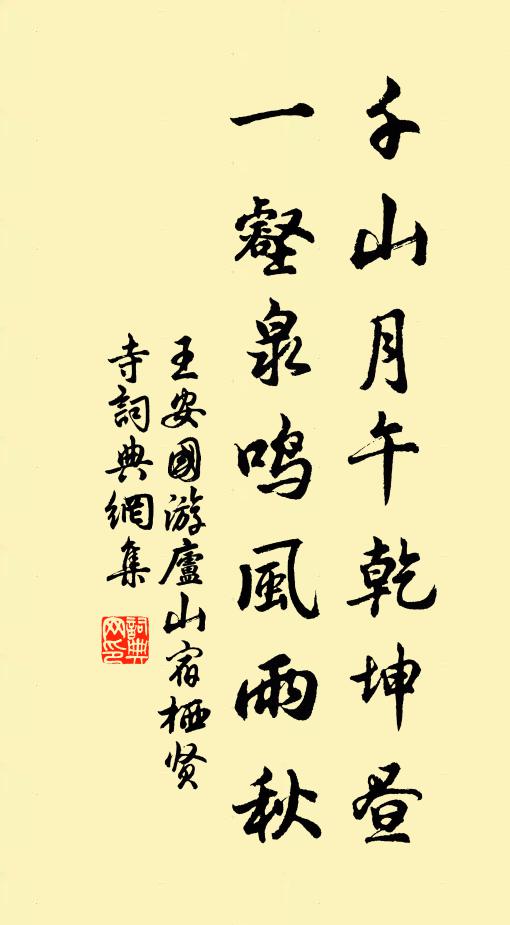 千山月午乾坤昼
一壑泉鸣風雨秋
王安國游廬山宿栖贤
寺詞典網集
詞典
网印